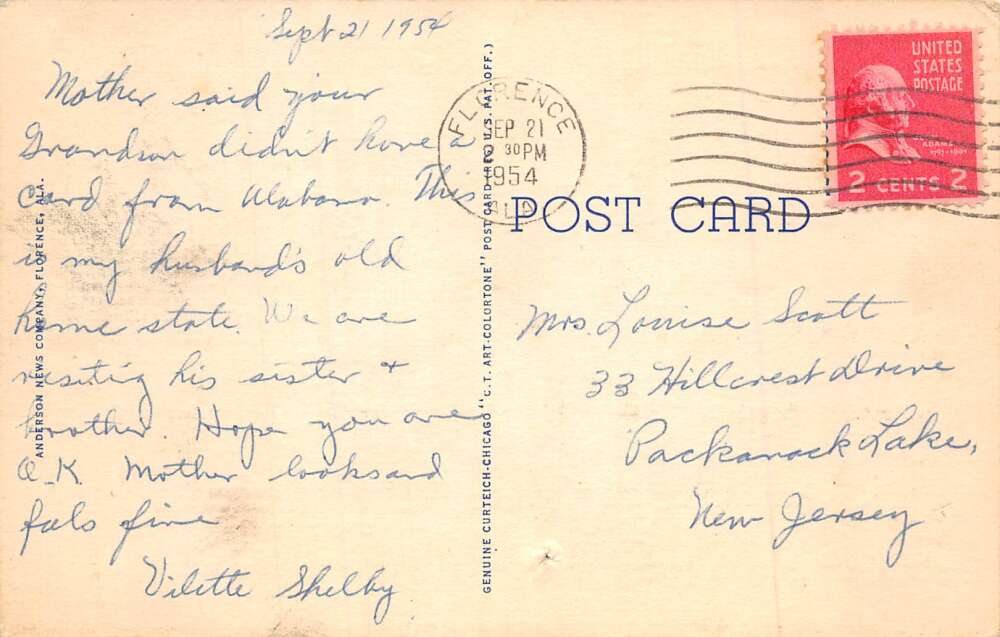 Sept 21 1954
Mother said your
Grandson didn't have a
card from Alabama. This
is my husband's old
home state. We are
visiting his sister +
brother. Hope you are
O.K. Mother looks and
feels fine
Vilette Shelby
ANDERSON NEWS COMPANY, FLORENCE, ALA.
GENUINE CURTEICH-CHICAGO "C.T. ART-COLORTONE" POST CARD (REG. U.S. PAT. OFF.)
FLORENCE
SEP 21
30 PM
1954
ALA
UNITED
STATES
POSTAGE
ADAMS
2 CENTS 2
POST CARD
Mrs. Louise Scott
33 Hillcrest Drive
Packanack Lake,
New Jersey